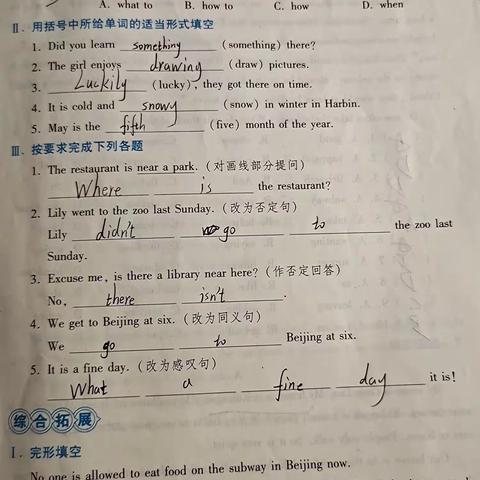 A. what to B. how to C. how D. when
Ⅱ. 用括号中所给单词的适当形式填空
1. Did you learn something (something) there?
2. The girl enjoys drawing (draw) pictures.
3. Luckily (lucky), they got there on time.
4. It is cold and snowy (snow) in winter in Harbin.
5. May is the fifth (five) month of the year.
Ⅲ. 按要求完成下列各题
1. The restaurant is near a park. (对画线部分提问)
Where is the restaurant?
2. Lily went to the zoo last Sunday. (改为否定句)
Lily didn't go to the zoo last
Sunday.
3. Excuse me, is there a library near here? (作否定回答)
No, there isn't.
4. We get to Beijing at six. (改为同义句)
We go to Beijing at six.
5. It is a fine day. (改为感叹句)
What a fine day it is!
综合拓展
Ⅰ. 完形填空
No one is allowed to eat food on the subway in Beijing now.